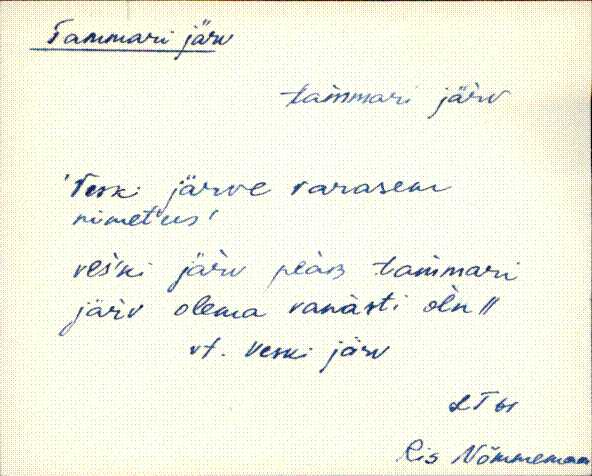 Tammari järv
tam̀mari jär̀v
'Veski järve varasem
nimetus'
ves̀ki jär̀v peàB tam̀mari
jär̀v olema vanàsti ol̀n //
vt. Veski järv
Ris Nõmmemaa